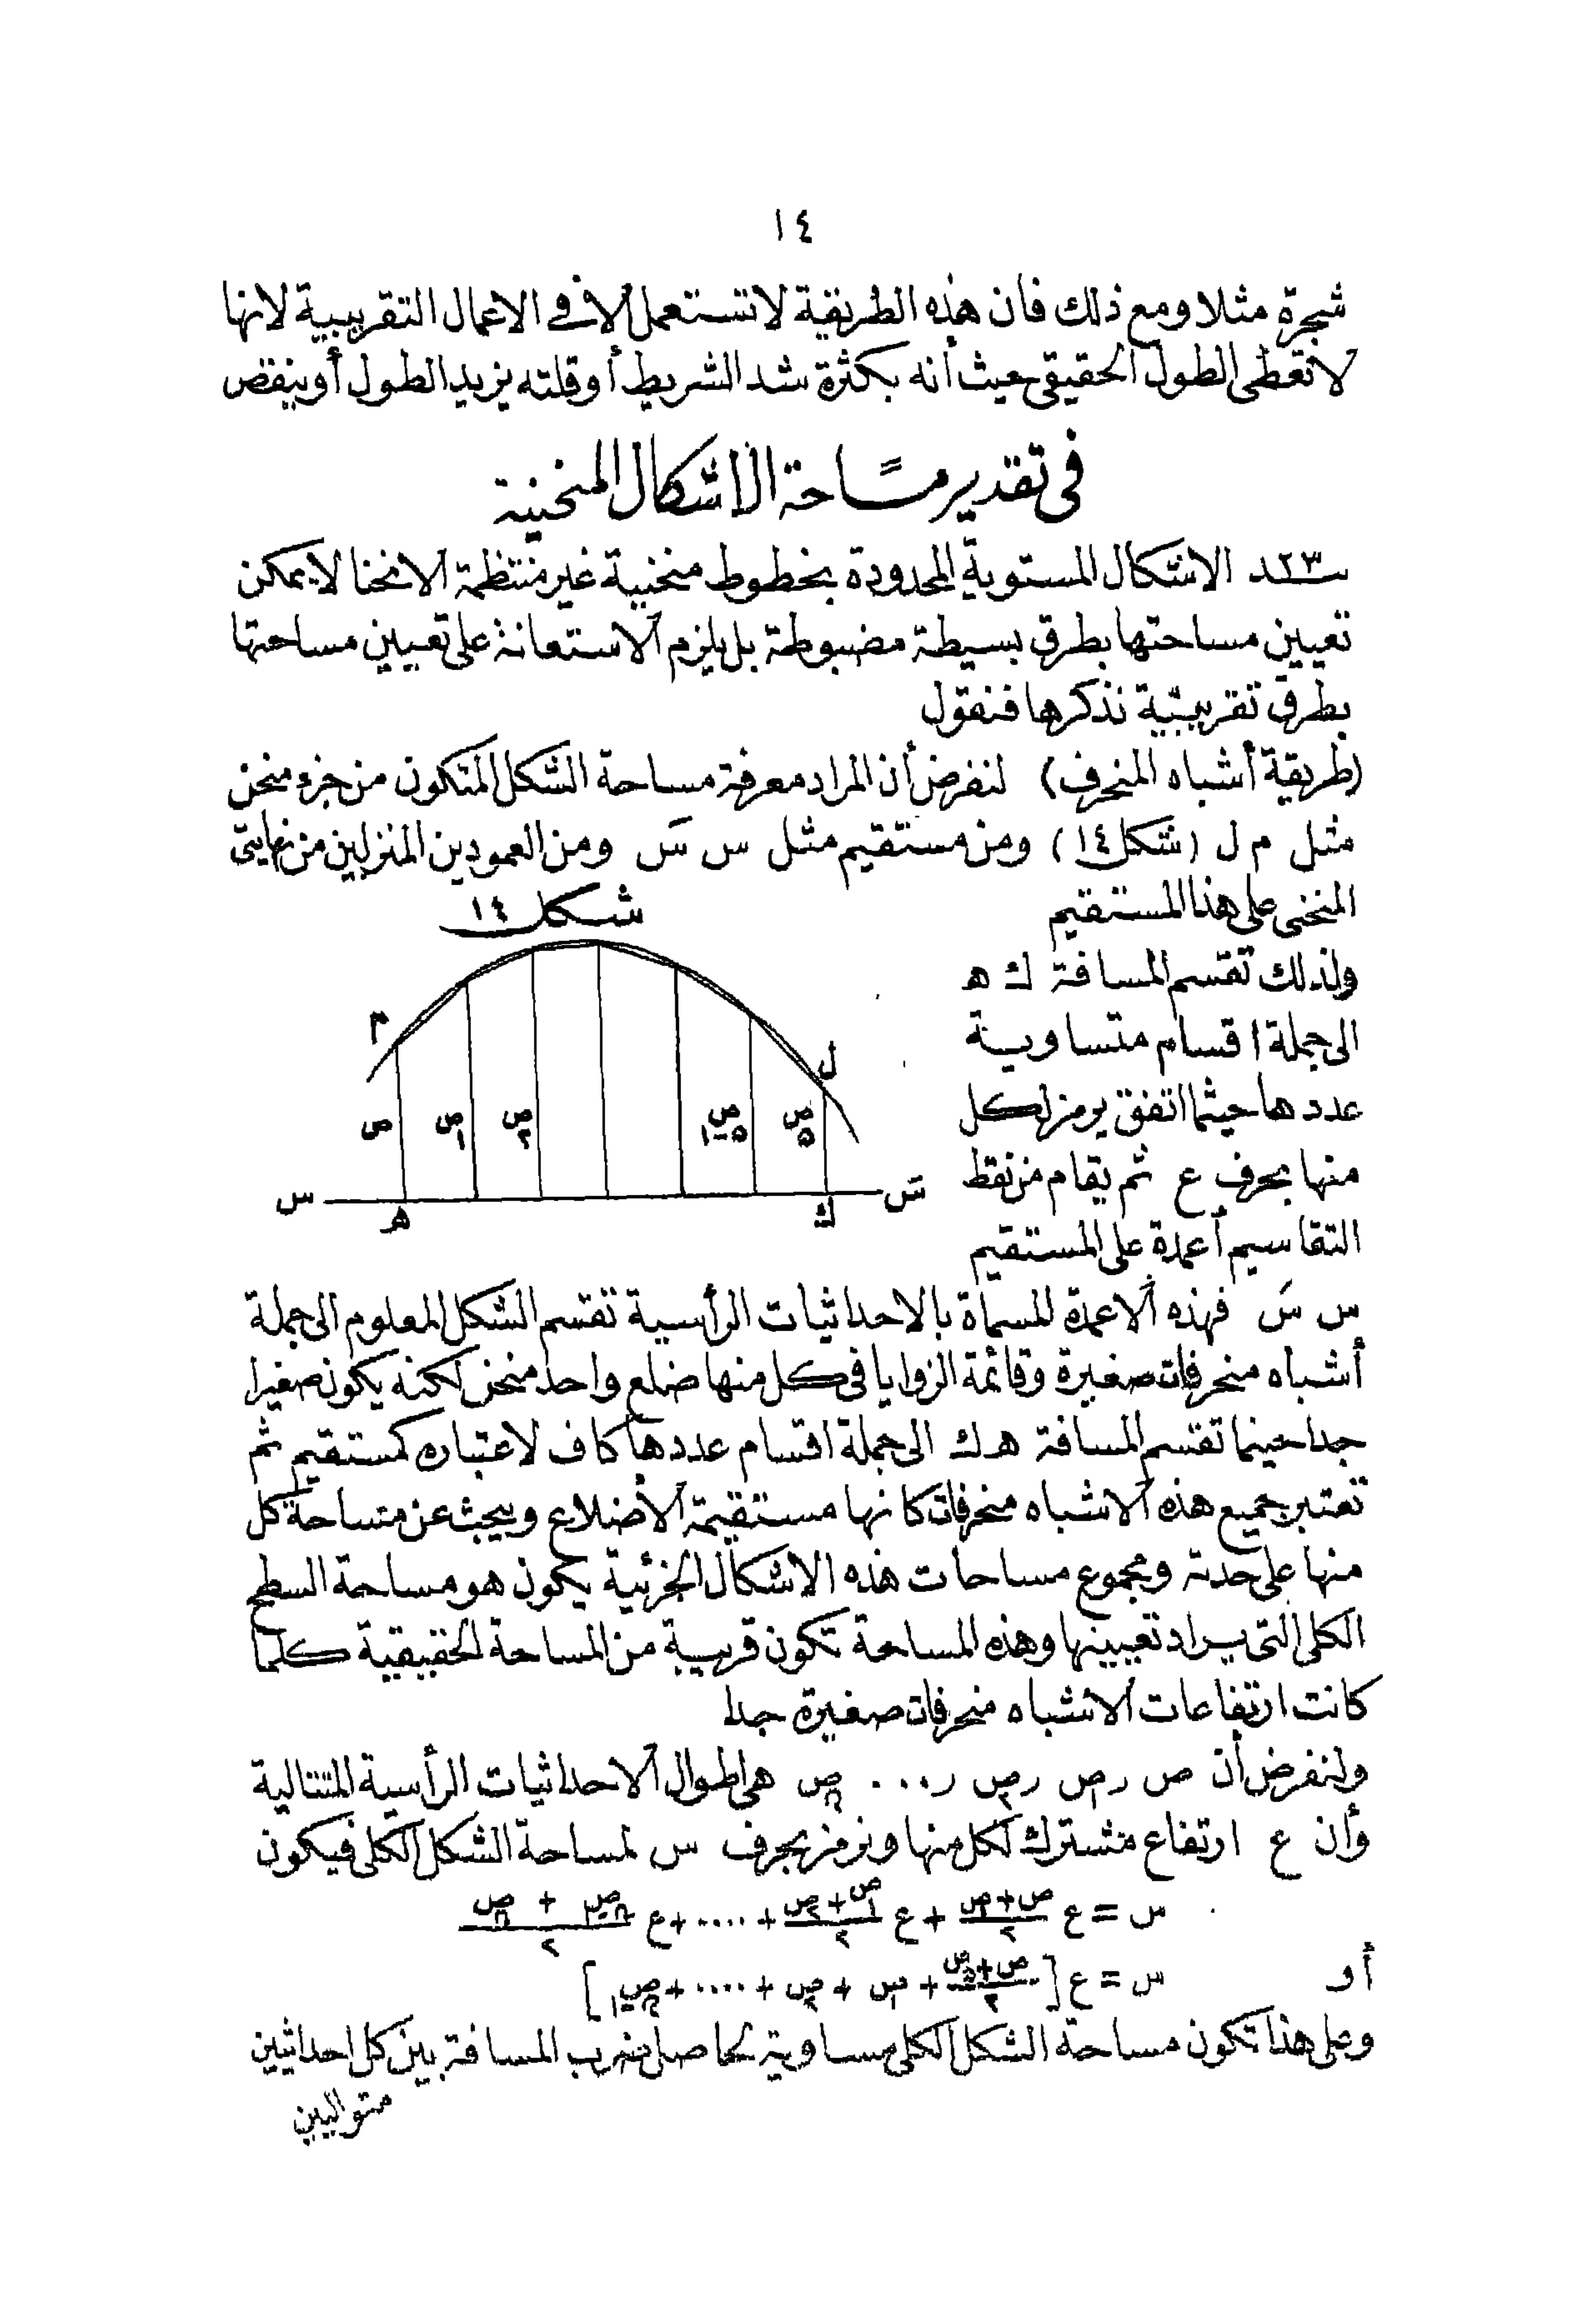 ١٤
شجرة مثلا ومع ذلك فان هذه الطريقة لا تستعمل الا في الاعمال التقريبية لانها
لا تعطى الطول الحقيقى حيث أنه بكثرة شد الشريط أو قلته يزيد الطول أو ينقص
فى تقدير مساحة الاشكال المنحنية
٢٣ــد الاشكال المستوية المحدودة بخطوط منحنية غير منتظمة الانحنا لا يمكن
تعيين مساحتها بطرق بسيطة مضبوطة بل يلزم الاستعانة على تعيين مساحتها
بطرق تقريبية نذكرها فنقول
(طريقة أشباه المنحرف) لنفرض أن المراد معرفة مساحة الشكل المتكون من جزء منحن
مثل م ل (شكل ١٤) ومن مستقيم مثل س سَ ومن العمودين المنزلين من نهايتى
المنحنى على هذا المستقيم
ولذلك تقسم المسافة ك ه
الى جملة اقسام متساوية
عدد ها حيثما اتفق يرمز لكل
منها بحرف ع ثم يقام من نقط
التقاسيم أعمدة على المستقيم
شكل ١٤
م
ل
ص
ص١
ص٢
ص٥-١
ص٥
س
سَ
ه
ك
س سَ فهذه الاعمدة المسماة بالاحداثيات الرأسية تقسم الشكل المعلوم الى جملة
أشباه منحرفات صغيرة وقائمة الزوايا فى كل منها ضلع واحد منحن لكنه يكون صغيرا
جدا حينما تقسم المسافة ه ك الى جملة اقسام عددها كاف لاعتباره كمستقيم ثم
تعتبر جميع هذه الاشباه منحرفات كانها مستقيمة الأضلاع ويبحث عن مساحة كل
منها على حدته ومجموع مساحات هذه الاشكال الجزئية يكون هو مساحة السطح
الكلى التى يراد تعيينها وهذه المساحة تكون قريبة من المساحة الحقيقية كلما
كانت ارتفاعات الاشباه منحرفات صغيرة جدا
ولنفرض أن ص ر ص١ ر ص٢ ر ... صن هى اطوال الاحداثيات الرأسية المتتالية
وأن ع ارتفاع مشترك لكل منها ونرمز بحرف س لمساحة الشكل الكلى فيكون
س = ع (ص+ص١)/٢ + ع (ص١+ص٢)/٢ + .... + ع (صن-١ + صن)/٢
أو س = ع [(ص+صن)/٢ + ص١ + ص٢ + .... + صن-١]
وعلى هذا تكون مساحة الشكل الكلى مساوية لحاصل ضرب المسافة بين كل احداثيين
متواليين